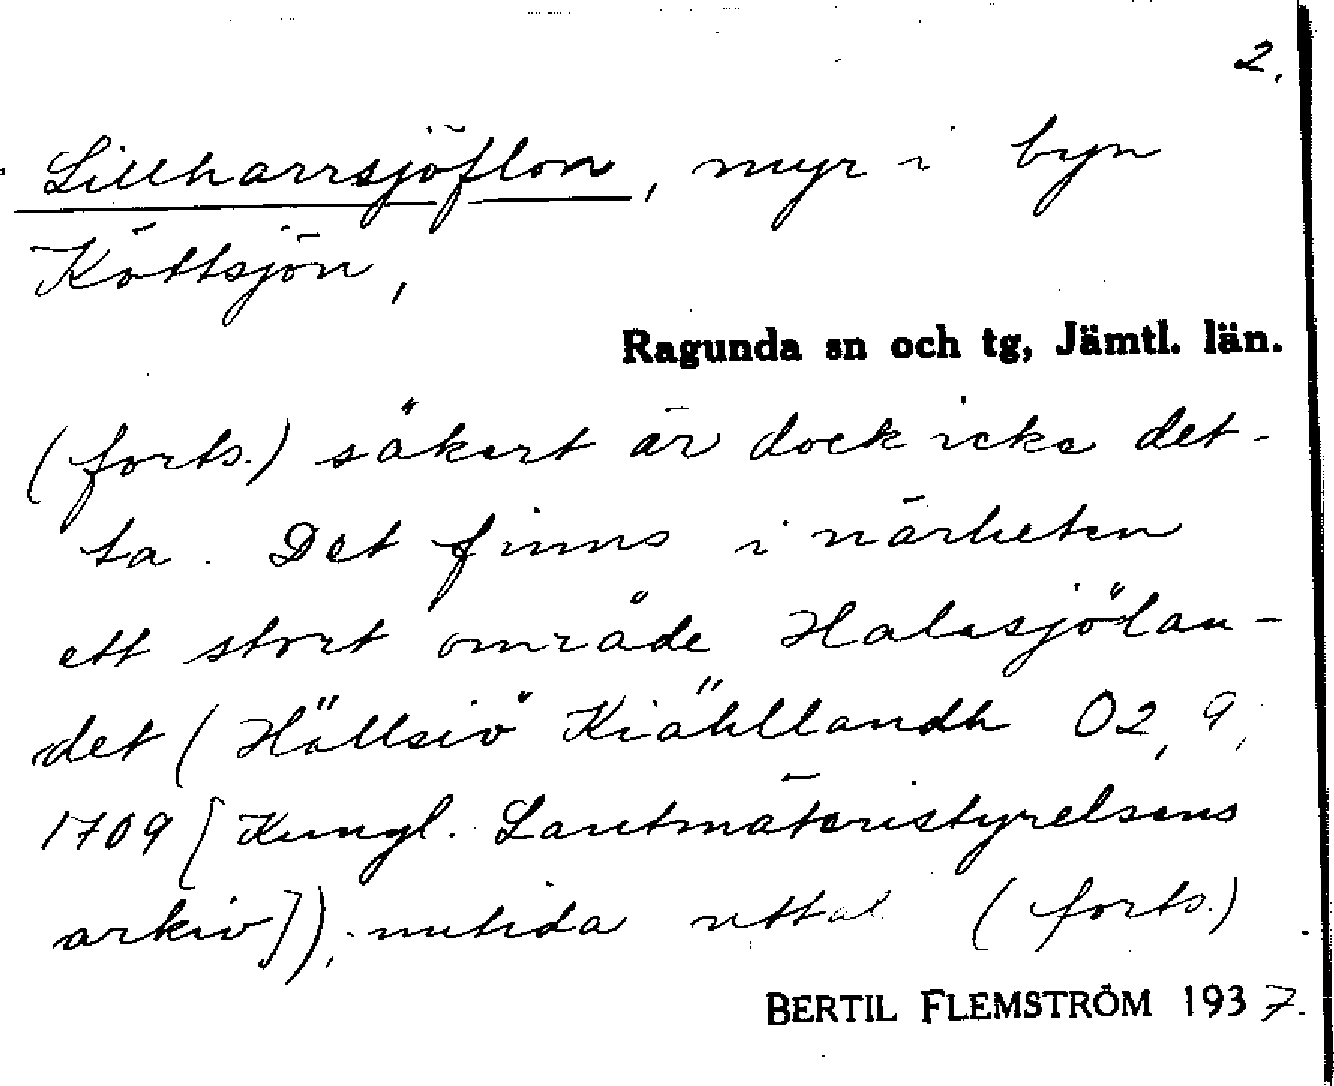 2.
Lillharrsjöflon, myr i byn
Köttsjön,
Ragunda sn och tg, Jämtl. län.
(forts.) säkert är dock icke det-
ta. Det finns i närheten
ett stort område Halasjölan-
det (Hällsiö Kiähllandh O2, 9,
1709 [Kungl. Lantmäteristyrelsens
arkiv]), nutida uttal (forts.)
BERTIL FLEMSTRÖM 1937.